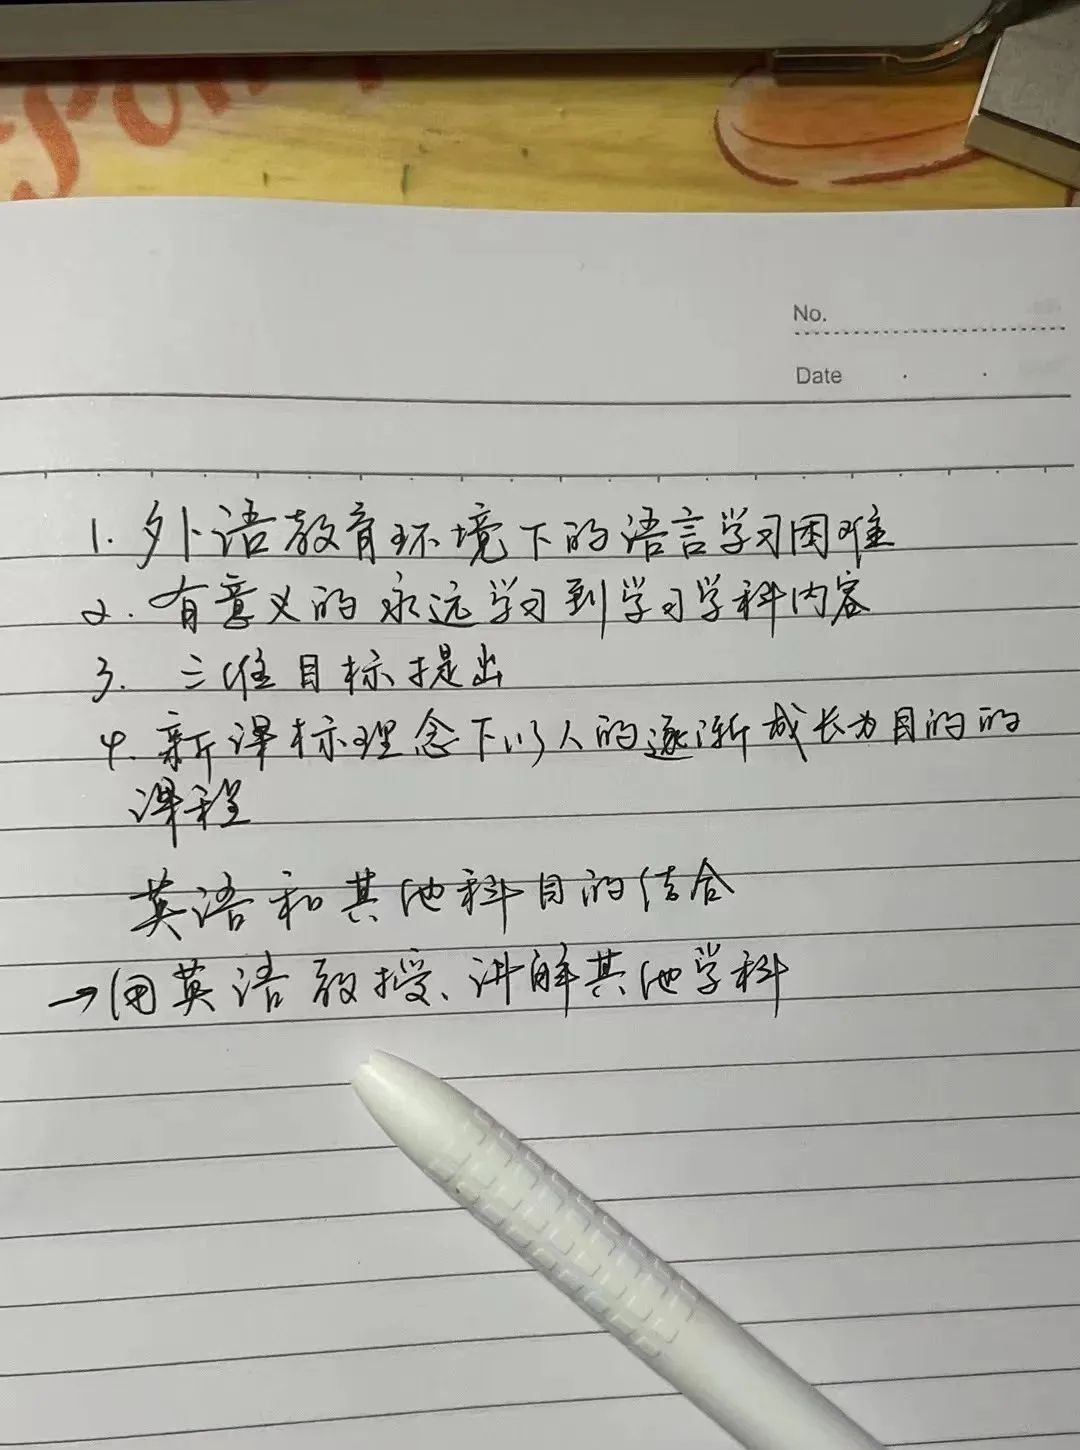 No.
Date
1. 外语教育环境下的语言学习困难
2. 有意义的永远学习到学习学科内容
3. 三维目标提出
4. 新课标理念下以人的逐渐成长为目的的
课程
英语和其他科目的结合
→用英语教授、讲解其他学科